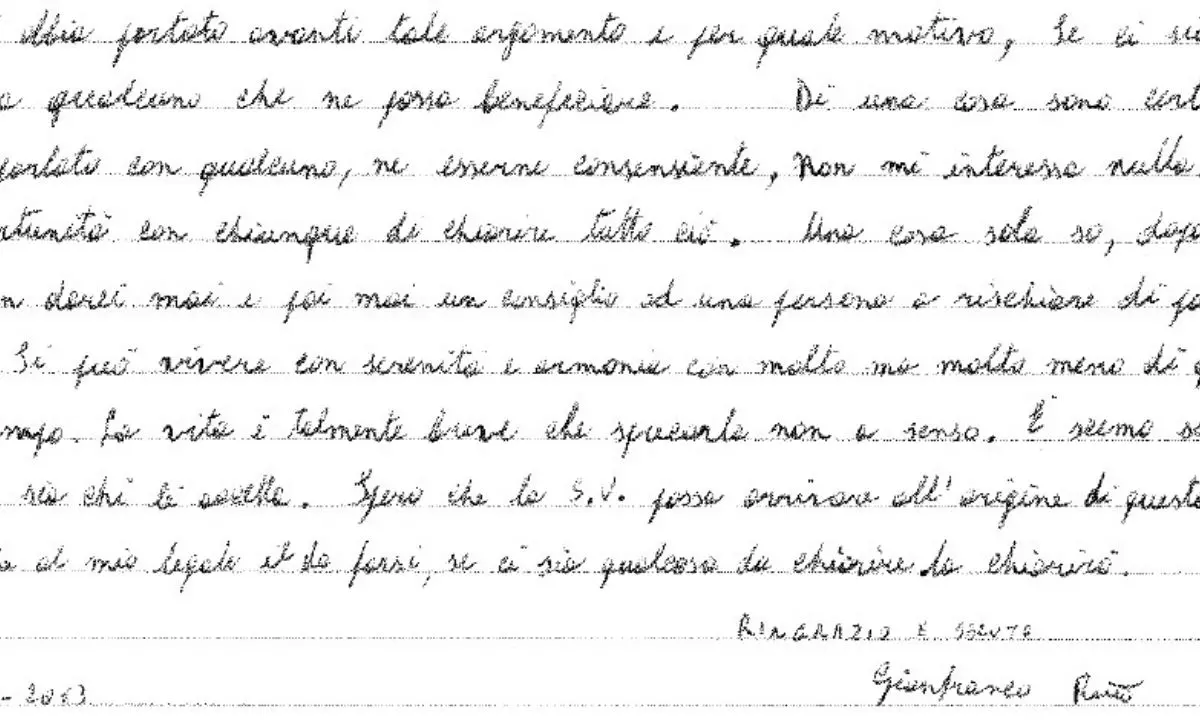 abbia portato avanti tale argomento e per quale motivo, Se ci
qualcuno che ne possa beneficiare. Di una cosa sono
parlato con qualcuno, ne esserne consensiente, Non mi interessa nulla
con chiunque di chiarire tutto ciò. Una cosa sola so, dopo
darei mai e poi mai un consiglio ad una persona a rischiare di
Si può vivere con serenità e armonia con molto ma molto meno di
La vita è talmente breve che specarla non a senso. È scemo
sia chi li ascolta. Spero che la S.V. possa arrivare all'origine di questo
al mio legale il da farsi, se ci sia qualcosa da chiarire lo chiarirò.
RINGRAZIO E
Gianfranco